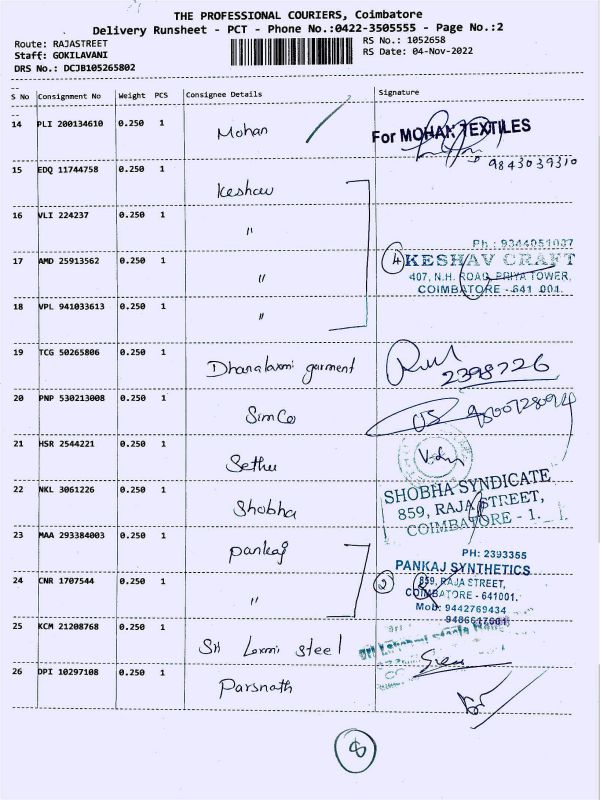 THE PROFESSIONAL COURIERS, Coimbatore
Delivery Runsheet - PCT - Phone No.:0422-3505555 - Page No.:2
Route: RAJASTREET
Staff: GOKILAVANI
DRS No.: DCJB105265802
RS No.: 1052658
RS Date: 04-Nov-2022
S No Consignment No Weight PCS Consignee Details Signature
14 PLI 200134610 0.250 1 Mohan
For MOHAN TEXTILES
9843039310
15 EDQ 11744758 0.250 1 Keshav
16 VLI 224237 0.250 1 "
17 AMD 25913562 0.250 1 "
18 VPL 941033613 0.250 1 "
4
Ph : 9344051037
KESHAV CRAFT
407, N.H. ROAD, PRIYA TOWER,
COIMBATORE - 641 001.
19 TCG 50265806 0.250 1 Dhanalaxmi garment
2398726
20 PNP 530213008 0.250 1 SimCo
21 HSR 2544221 0.250 1 Sethu
22 NKL 3061226 0.250 1 Shobha
SHOBHA SYNDICATE
859, RAJA STREET,
COIMBATORE - 1.
23 MAA 293384003 0.250 1 Pankaj
24 CNR 1707544 0.250 1 "
2
PH: 2393355
PANKAJ SYNTHETICS
859, RAJA STREET,
COIMBATORE - 641001.
Mob: 9442769434
9486617601
25 KCM 21208768 0.250 1 Sri Laxmi steel
26 DPI 10297108 0.250 1 Parsnath
8